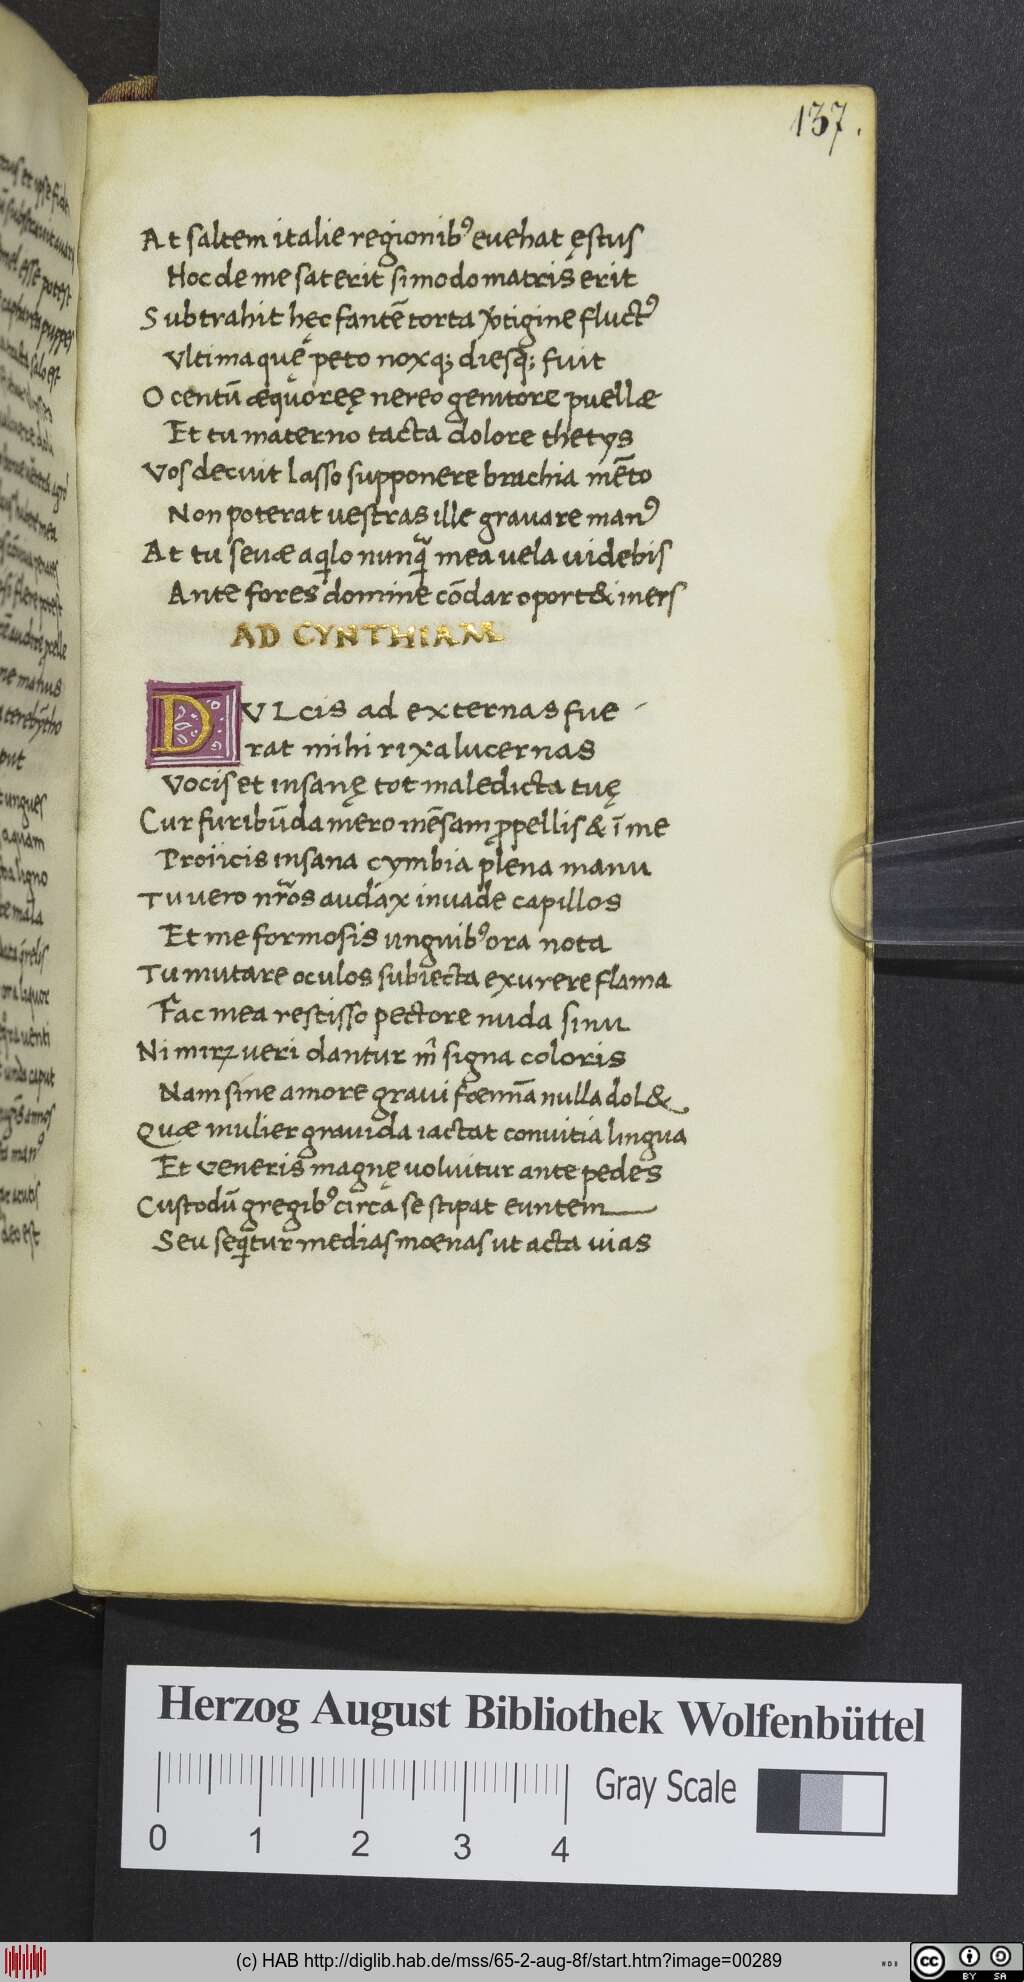 137.
At saltem italie regionibꝰ euehat ęstus
Hoc de me sat erit si modo matris erit
Subtrahit hęc fantē torta ỽtigine fluctꝰ
Vltima quę peto noxqꝫ diesqꝫ fuit
O centū æquoreę nereo genitore puellæ
Et tu materno tacta dolore thetys
Vos decuit lasso supponere brachia mēto
Non poterat uestras ille grauare manꝰ
At tu seuæ aqͥlo nunqᷓ mea uela uidebis
Ante fores domine cōdar oport& iners
AD CYNTHIAM
DVLcis ad externas fue
rat mihi rixa lucernas
Vocis et insanę tot maledicta tuę
Cur furibūda mero mēsam ꝓpellis & ī me
Proiicis insana cymbia plena manu
Tu uero nr̃os audax inuade capillos
Et me formosis unguibꝰ ora nota
Tu mutare oculos subiecta exurere flama
Fac mea rescisso pectore nuda sinu
Nimiꝝ ueri dantur m̂ signa coloris
Nam sine amore graui fœmīa nulla dol&
Quæ mulier grauida iactat conuitia lingua
Et Veneris magnę uoluitur ante pedes
Custodū gregibꝰ circa se stipat euntem
Seu seqͥtur medias mœnas ut acta uias
Herzog August Bibliothek Wolfenbüttel
Gray Scale
0 1 2 3 4
(c) HAB http://diglib.hab.de/mss/65-2-aug-8f/start.htm?image=00289
cc BY SA